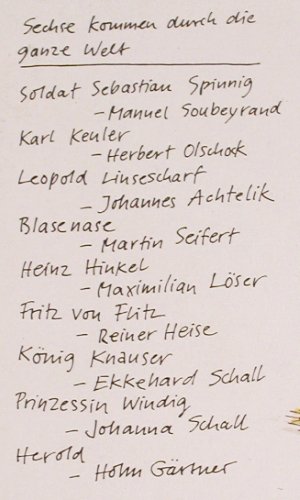 Sechse kommen durch die
ganze Welt
Soldat Sebastian Spinnig
- Manuel Soubeyrand
Karl Keuler
- Herbert Olschok
Leopold Linsescharf
- Johannes Achtelik
Blasenase
- Martin Seifert
Heinz Hinkel
- Maximilian Löser
Fritz von Flitz
- Reiner Heise
König Knauser
- Ekkehard Schall
Prinzessin Windig
- Johanna Schall
Herold
- Holm Gärtner